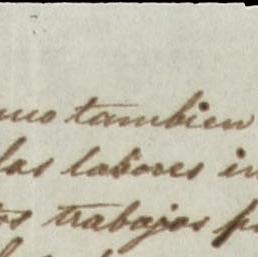 mo tambien
las labores in
os trabajos p